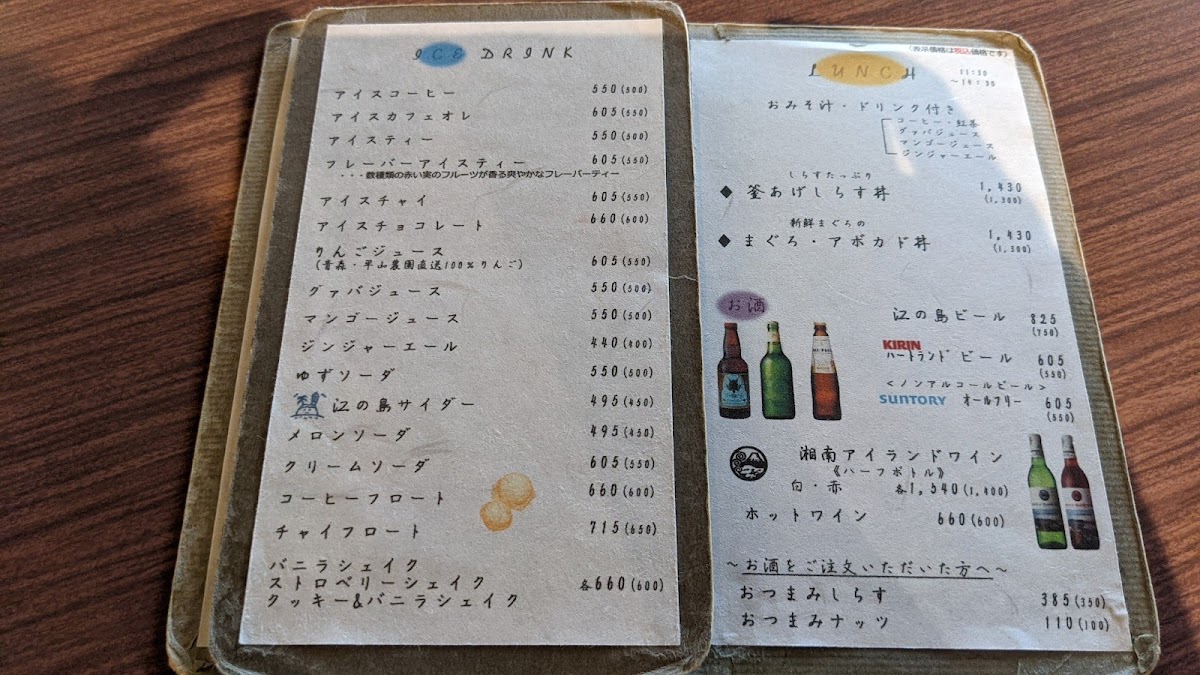 ICE DRINK
アイスコーヒー 550(500)
アイスカフェオレ 605(550)
アイスティー 550(500)
フレーバーアイスティー 605(550)
・・・数種類の赤い実のフルーツが香る爽やかなフレーバーティー
アイスチャイ 605(550)
アイスチョコレート 660(600)
りんごジュース
(青森・平山農園直送100%りんご) 605(550)
グァバジュース 550(500)
マンゴージュース 550(500)
ジンジャーエール 440(400)
ゆずソーダ 550(500)
江の島サイダー 495(450)
メロンソーダ 495(450)
クリームソーダ 605(550)
コーヒーフロート 660(600)
チャイフロート 715(650)
バニラシェイク
ストロベリーシェイク 各660(600)
クッキー&バニラシェイク
(表示価格は税込価格です)
LUNCH 11:30
～14:30
おみそ汁・ドリンク付き
コーヒー・紅茶
グァバジュース
マンゴージュース
ジンジャーエール
しらすたっぷり
◆ 釜あげしらす丼 1,430
(1,300)
新鮮まぐろの
◆ まぐろ・アボカド丼 1,430
(1,300)
お酒
江の島ビール 825
(750)
KIRIN
ハートランドビール 605
(550)
＜ノンアルコールビール＞
SUNTORY オールフリー 605
(550)
湘南アイランドワイン
《ハーフボトル》
白・赤 各1,540(1,400)
ホットワイン 660(600)
～お酒をご注文いただいた方へ～
おつまみしらす 385(350)
おつまみナッツ 110(100)